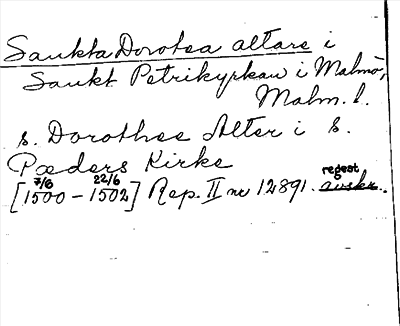 Sankta Dorotea altare i
Sankt Petrikyrkan i Malmö,
Malm. l.
s. Dorothee Alter i S.
Pæders Kirke
7/6 22/6 regest
[1500 - 1502] Rep. II nr 12891. avskr.